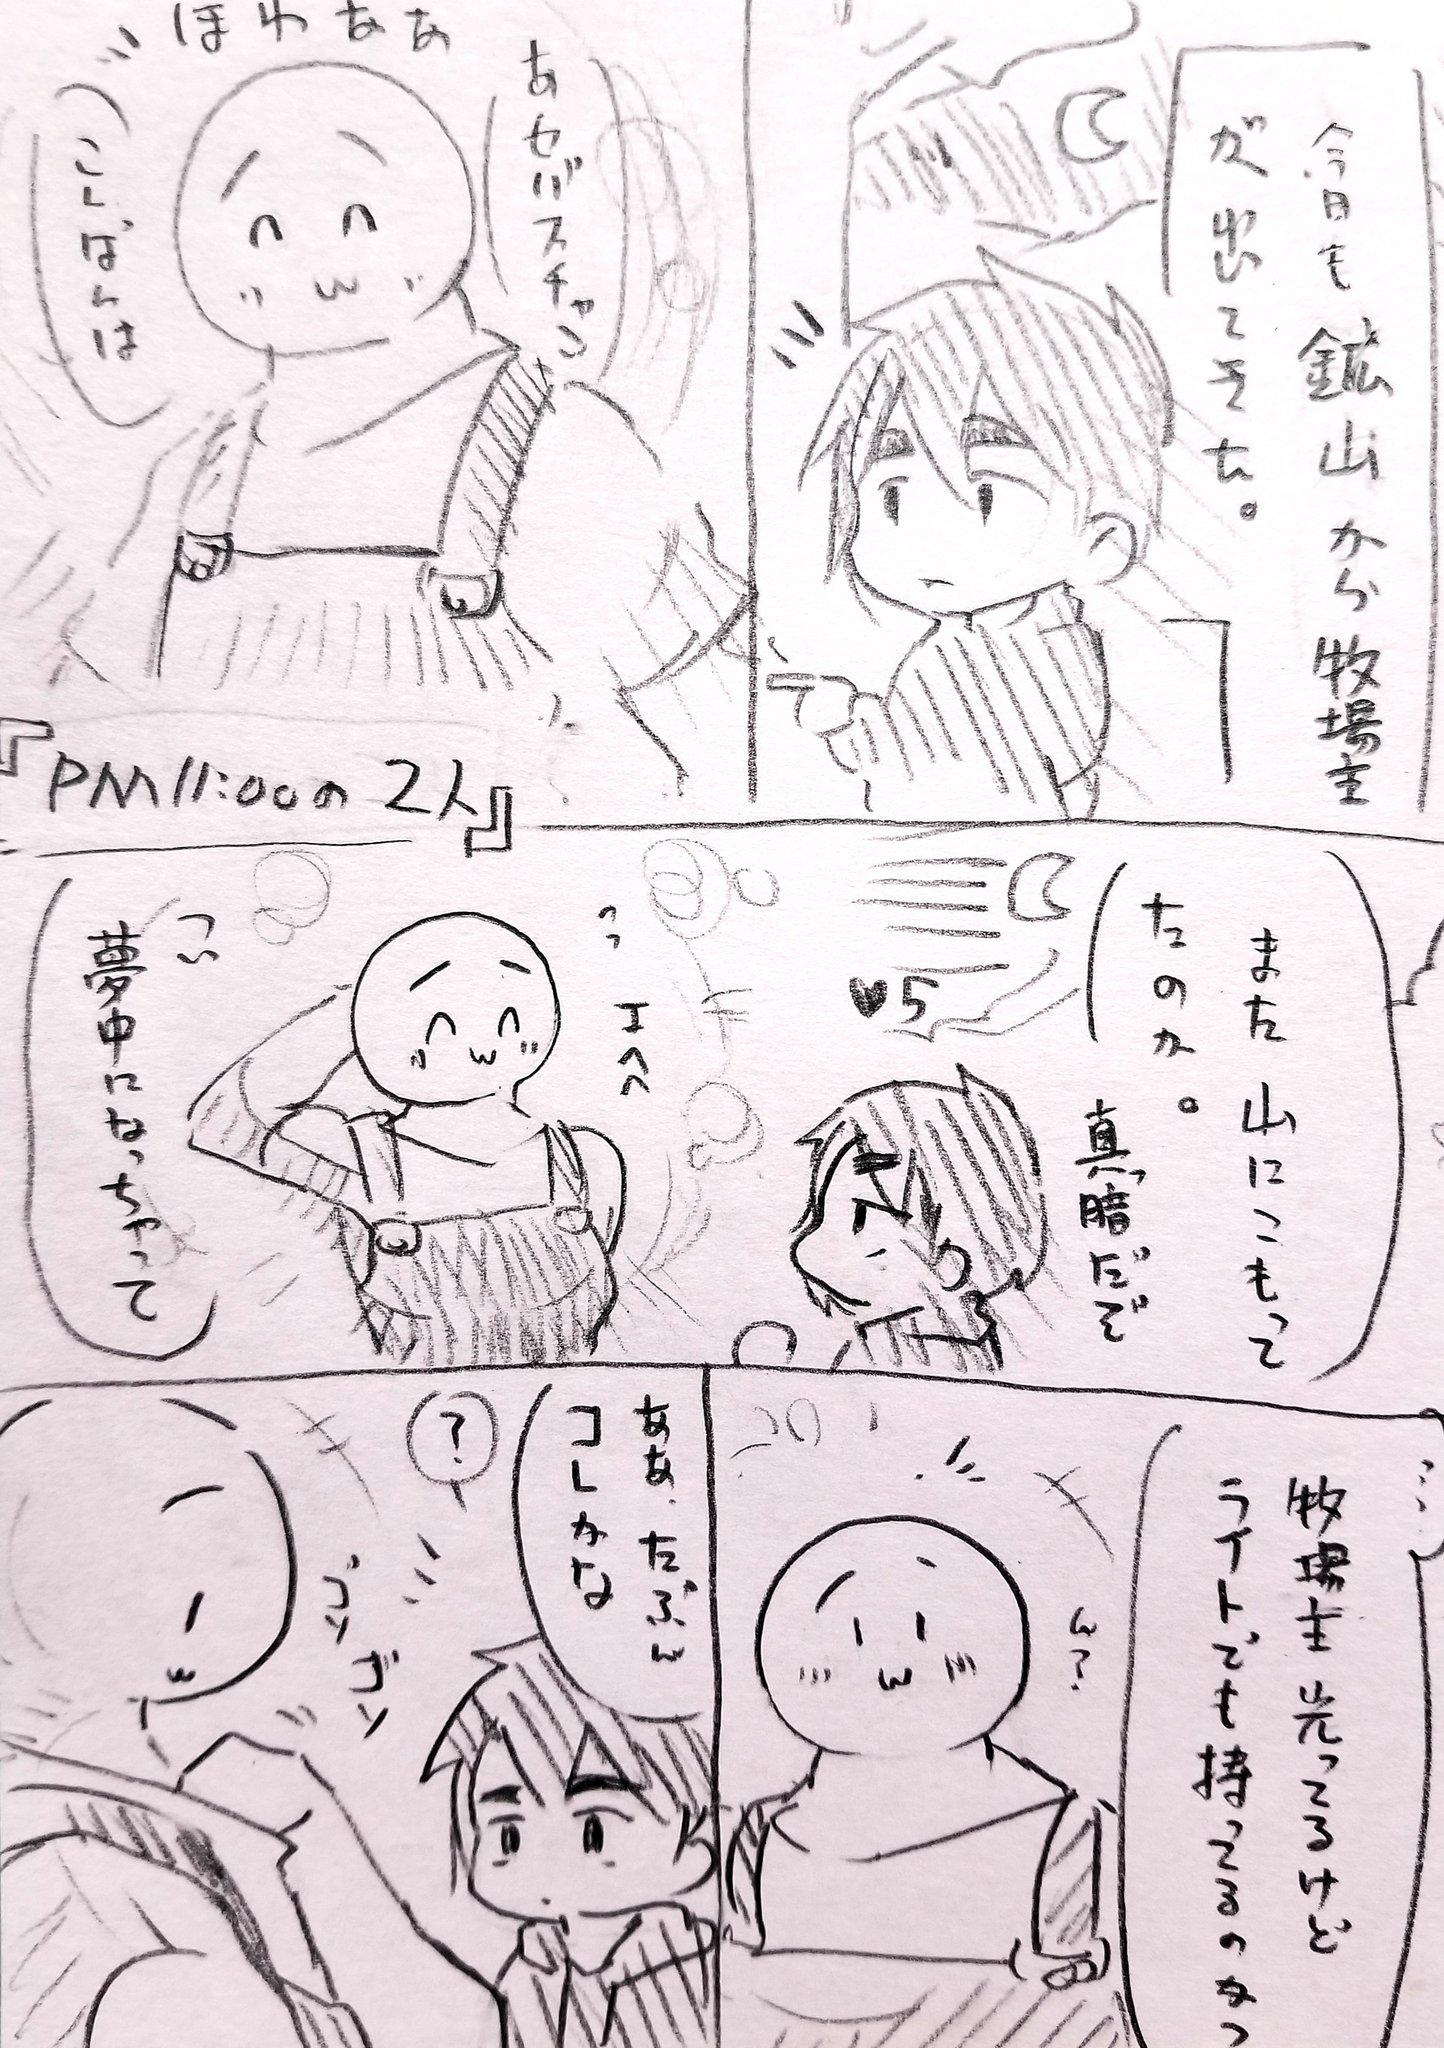 今日も鉱山から牧場主
が出てきた。
ほわああ
あセバスチャン
こんばんは
『PM11:00の2人』
また山にこもって
たのか。
真っ暗だぞ
♥5
エヘヘっ
つい
夢中になっちゃって
牧場主光ってるけど
ライトでも持ってるのかっ
ん?
ああ、たぶん
コレかな
?
ゴソ
ゴソ